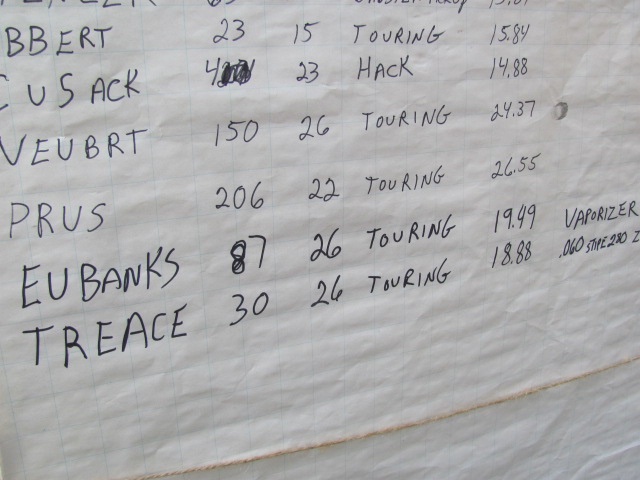 BBERT 23 15 TOURING 15.84
CUSACK 4 23 HACK 14.88
VEUBRT 150 26 TOURING 24.37
PRUS 206 22 TOURING 26.55
EUBANKS 87 26 TOURING 19.49 VAPORIZER
TREACE 30 26 TOURING 18.88 .060 STIPE 280 Z